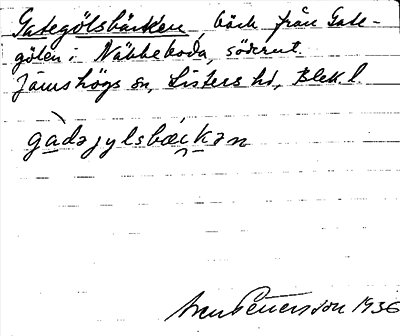 Gategölsbäcken, bäck från Gate-
gölen i Näbbeboda, söderut.
Jämshögs sn, Listers hd, Blek. l.
gàdəjylsbæ̀kən
Pettersson 1936